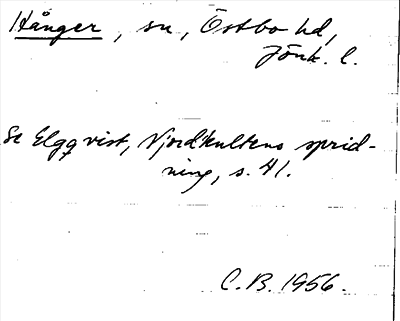 Hånger, sn, Östbo hd,
Jönk. l.
Se Elgqvist, Njordkultens sprid-
ning, s. 41.
C.B. 1956.